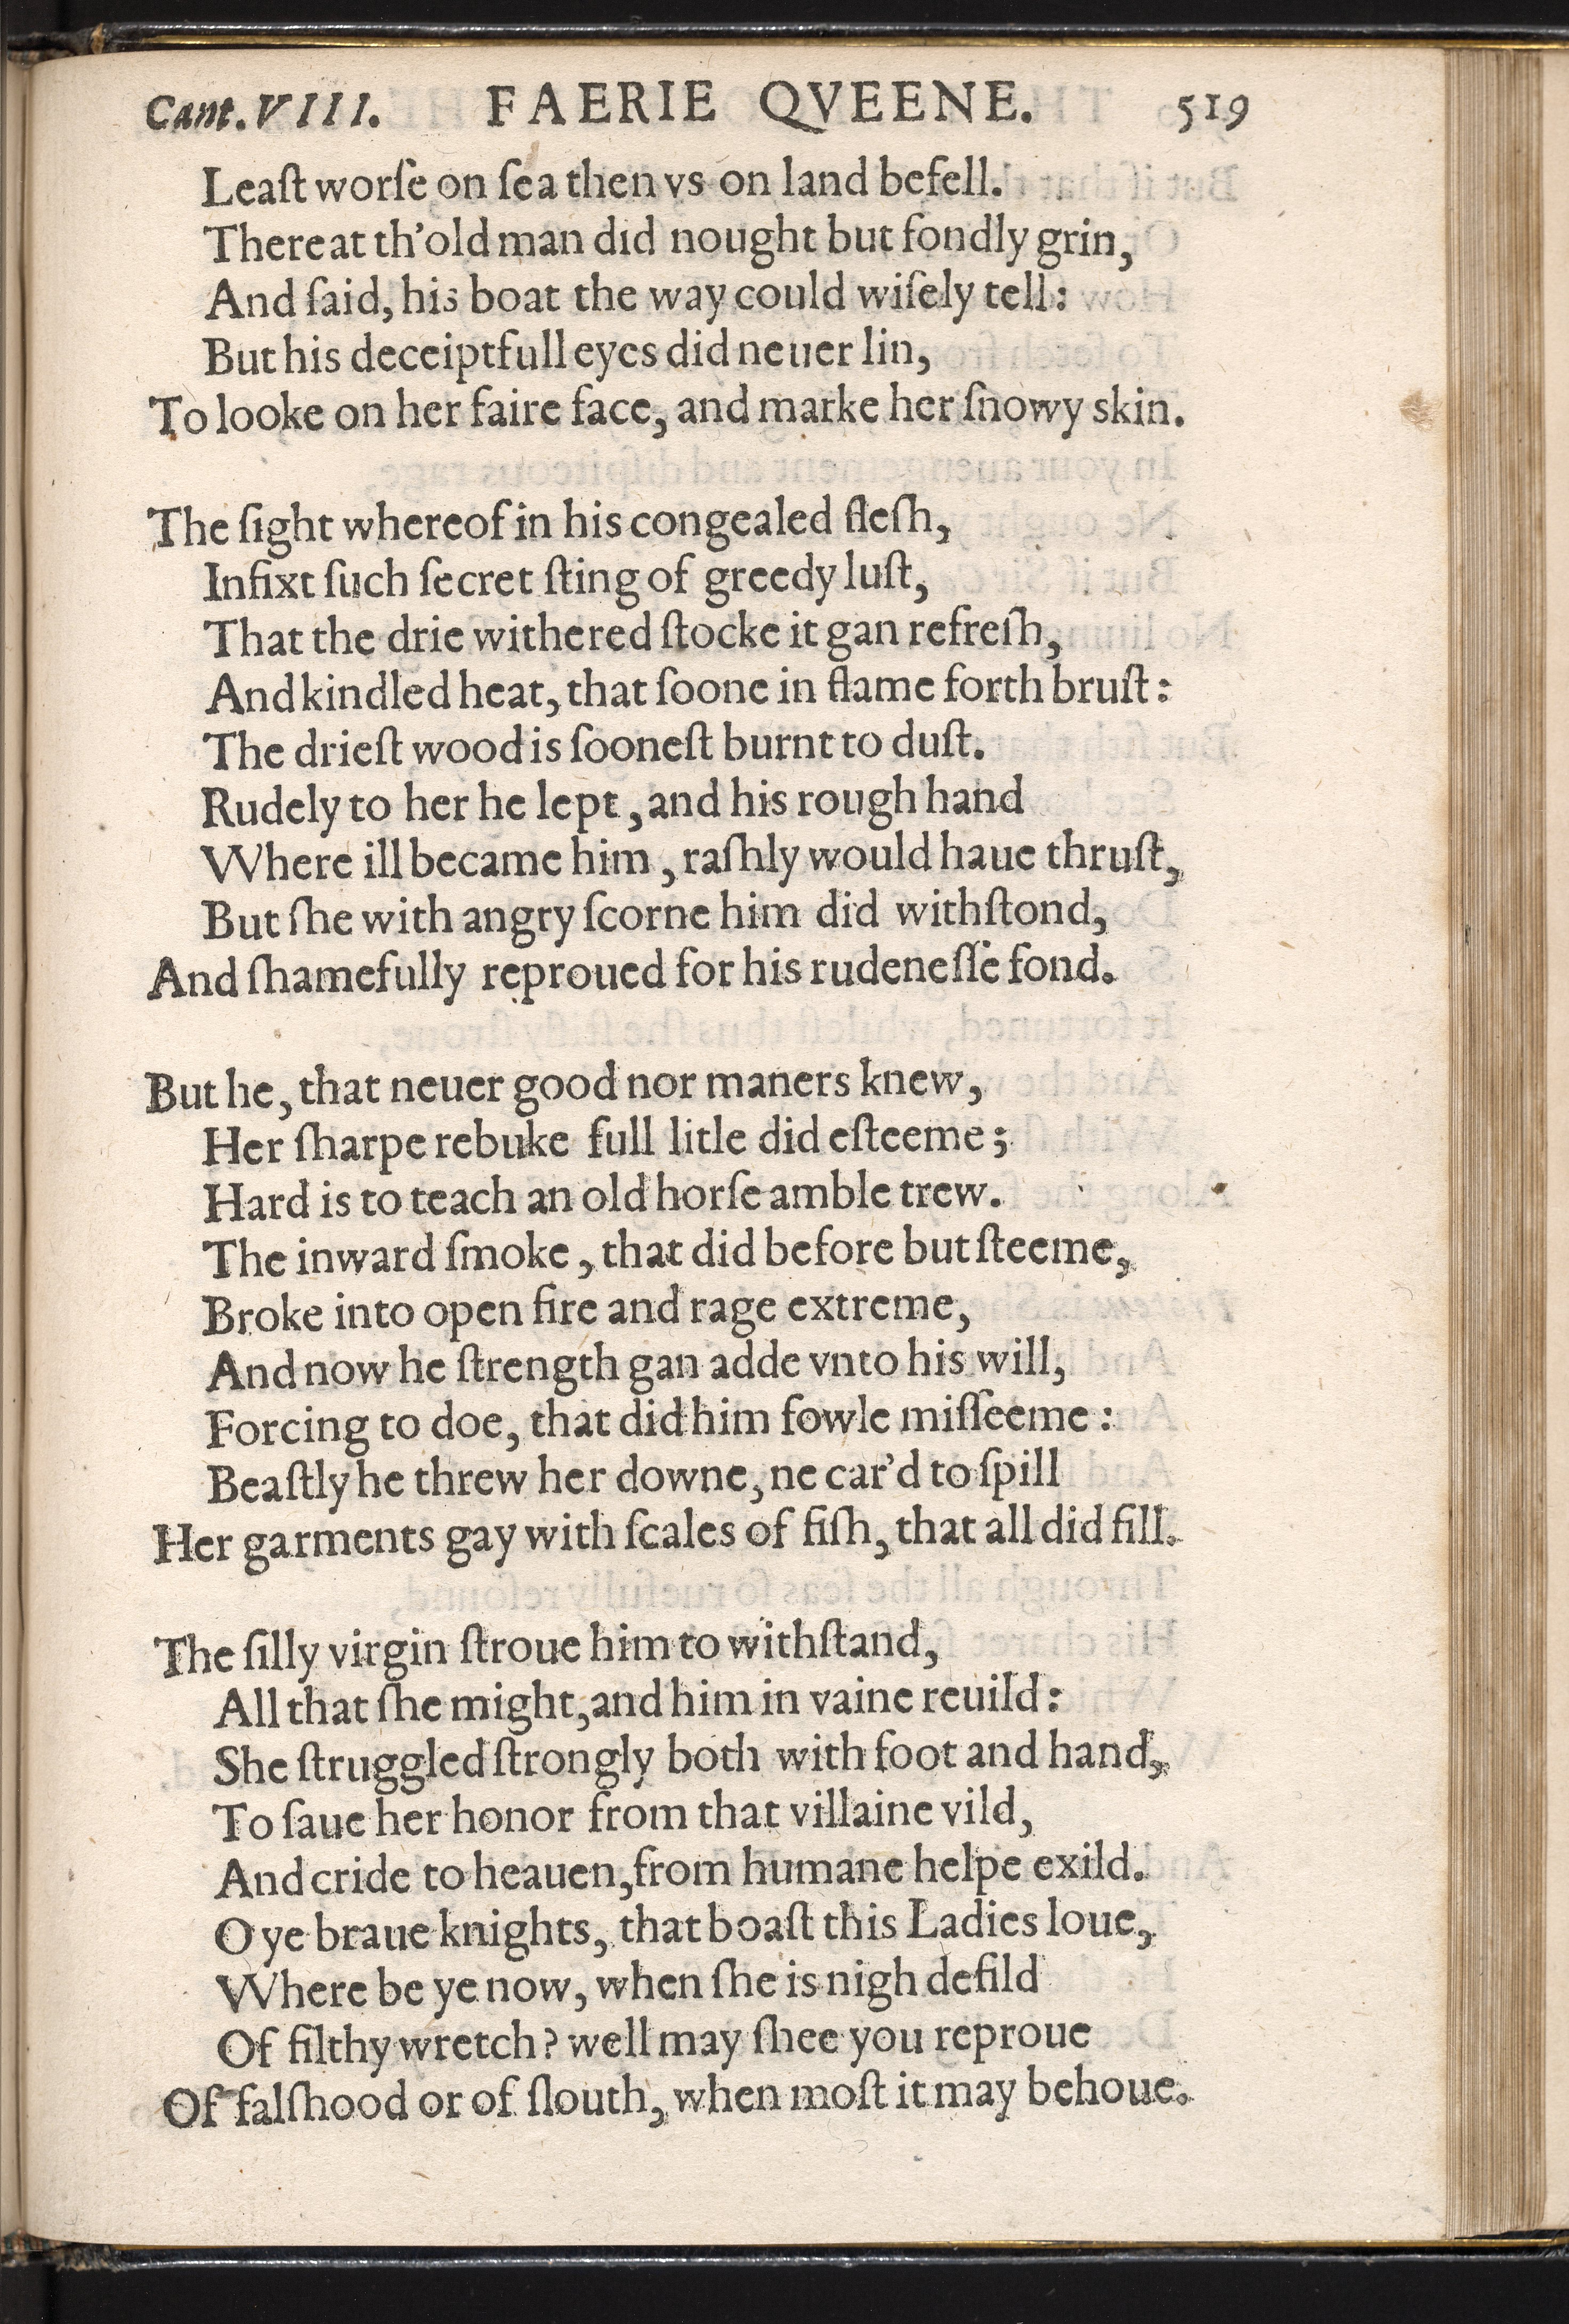 Cant. VIII. FAERIE QVEENE. 519
Leaſt worſe on ſea then vs on land befell.
Thereat th'old man did nought but fondly grin,
And ſaid, his boat the way could wiſely tell:
But his deceiptfull eyes did neuer lin,
To looke on her faire face, and marke her ſnowy skin.
The ſight whereof in his congealed fleſh,
Infixt ſuch ſecret ſting of greedy luſt,
That the drie withered ſtocke it gan refreſh,
And kindled heat, that ſoone in flame forth bruſt:
The drieſt wood is ſooneſt burnt to duſt.
Rudely to her he lept, and his rough hand
Where ill became him, raſhly would haue thruſt,
But ſhe with angry ſcorne him did withſtond,
And ſhamefully reproued for his rudeneſſe fond.
But he, that neuer good nor maners knew,
Her ſharpe rebuke full litle did eſteeme;
Hard is to teach an old horſe amble trew.
The inward ſmoke, that did before but ſteeme,
Broke into open fire and rage extreme,
And now he ſtrength gan adde vnto his will,
Forcing to doe, that did him fowle miſſeeme:
Beaſtly he threw her downe, ne car'd to ſpill
Her garments gay with ſcales of fiſh, that all did fill.
The ſilly virgin ſtroue him to withſtand,
All that ſhe might, and him in vaine reuild:
She ſtruggled ſtrongly both with foot and hand,
To ſaue her honor from that villaine vild,
And cride to heauen, from humane helpe exild.
O ye braue knights, that boaſt this Ladies loue,
Where be ye now, when ſhe is nigh defild
Of filthy wretch? well may ſhee you reproue
Of falſhood or of ſlouth, when moſt it may behoue.